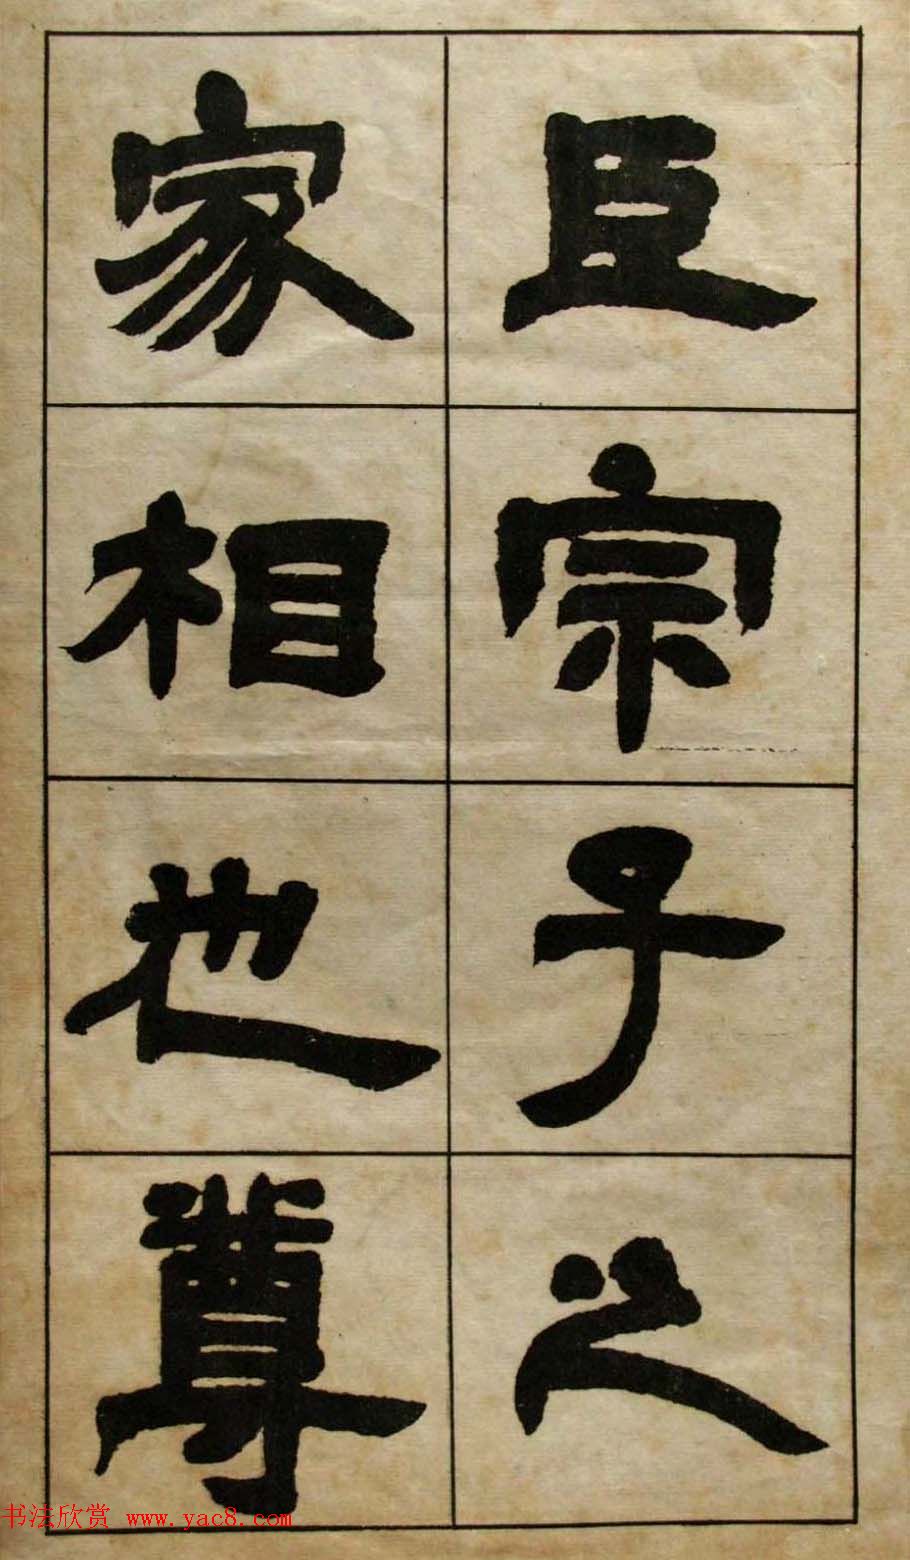 臣宗子之
家相也尊
书法欣赏 www.yac8.com